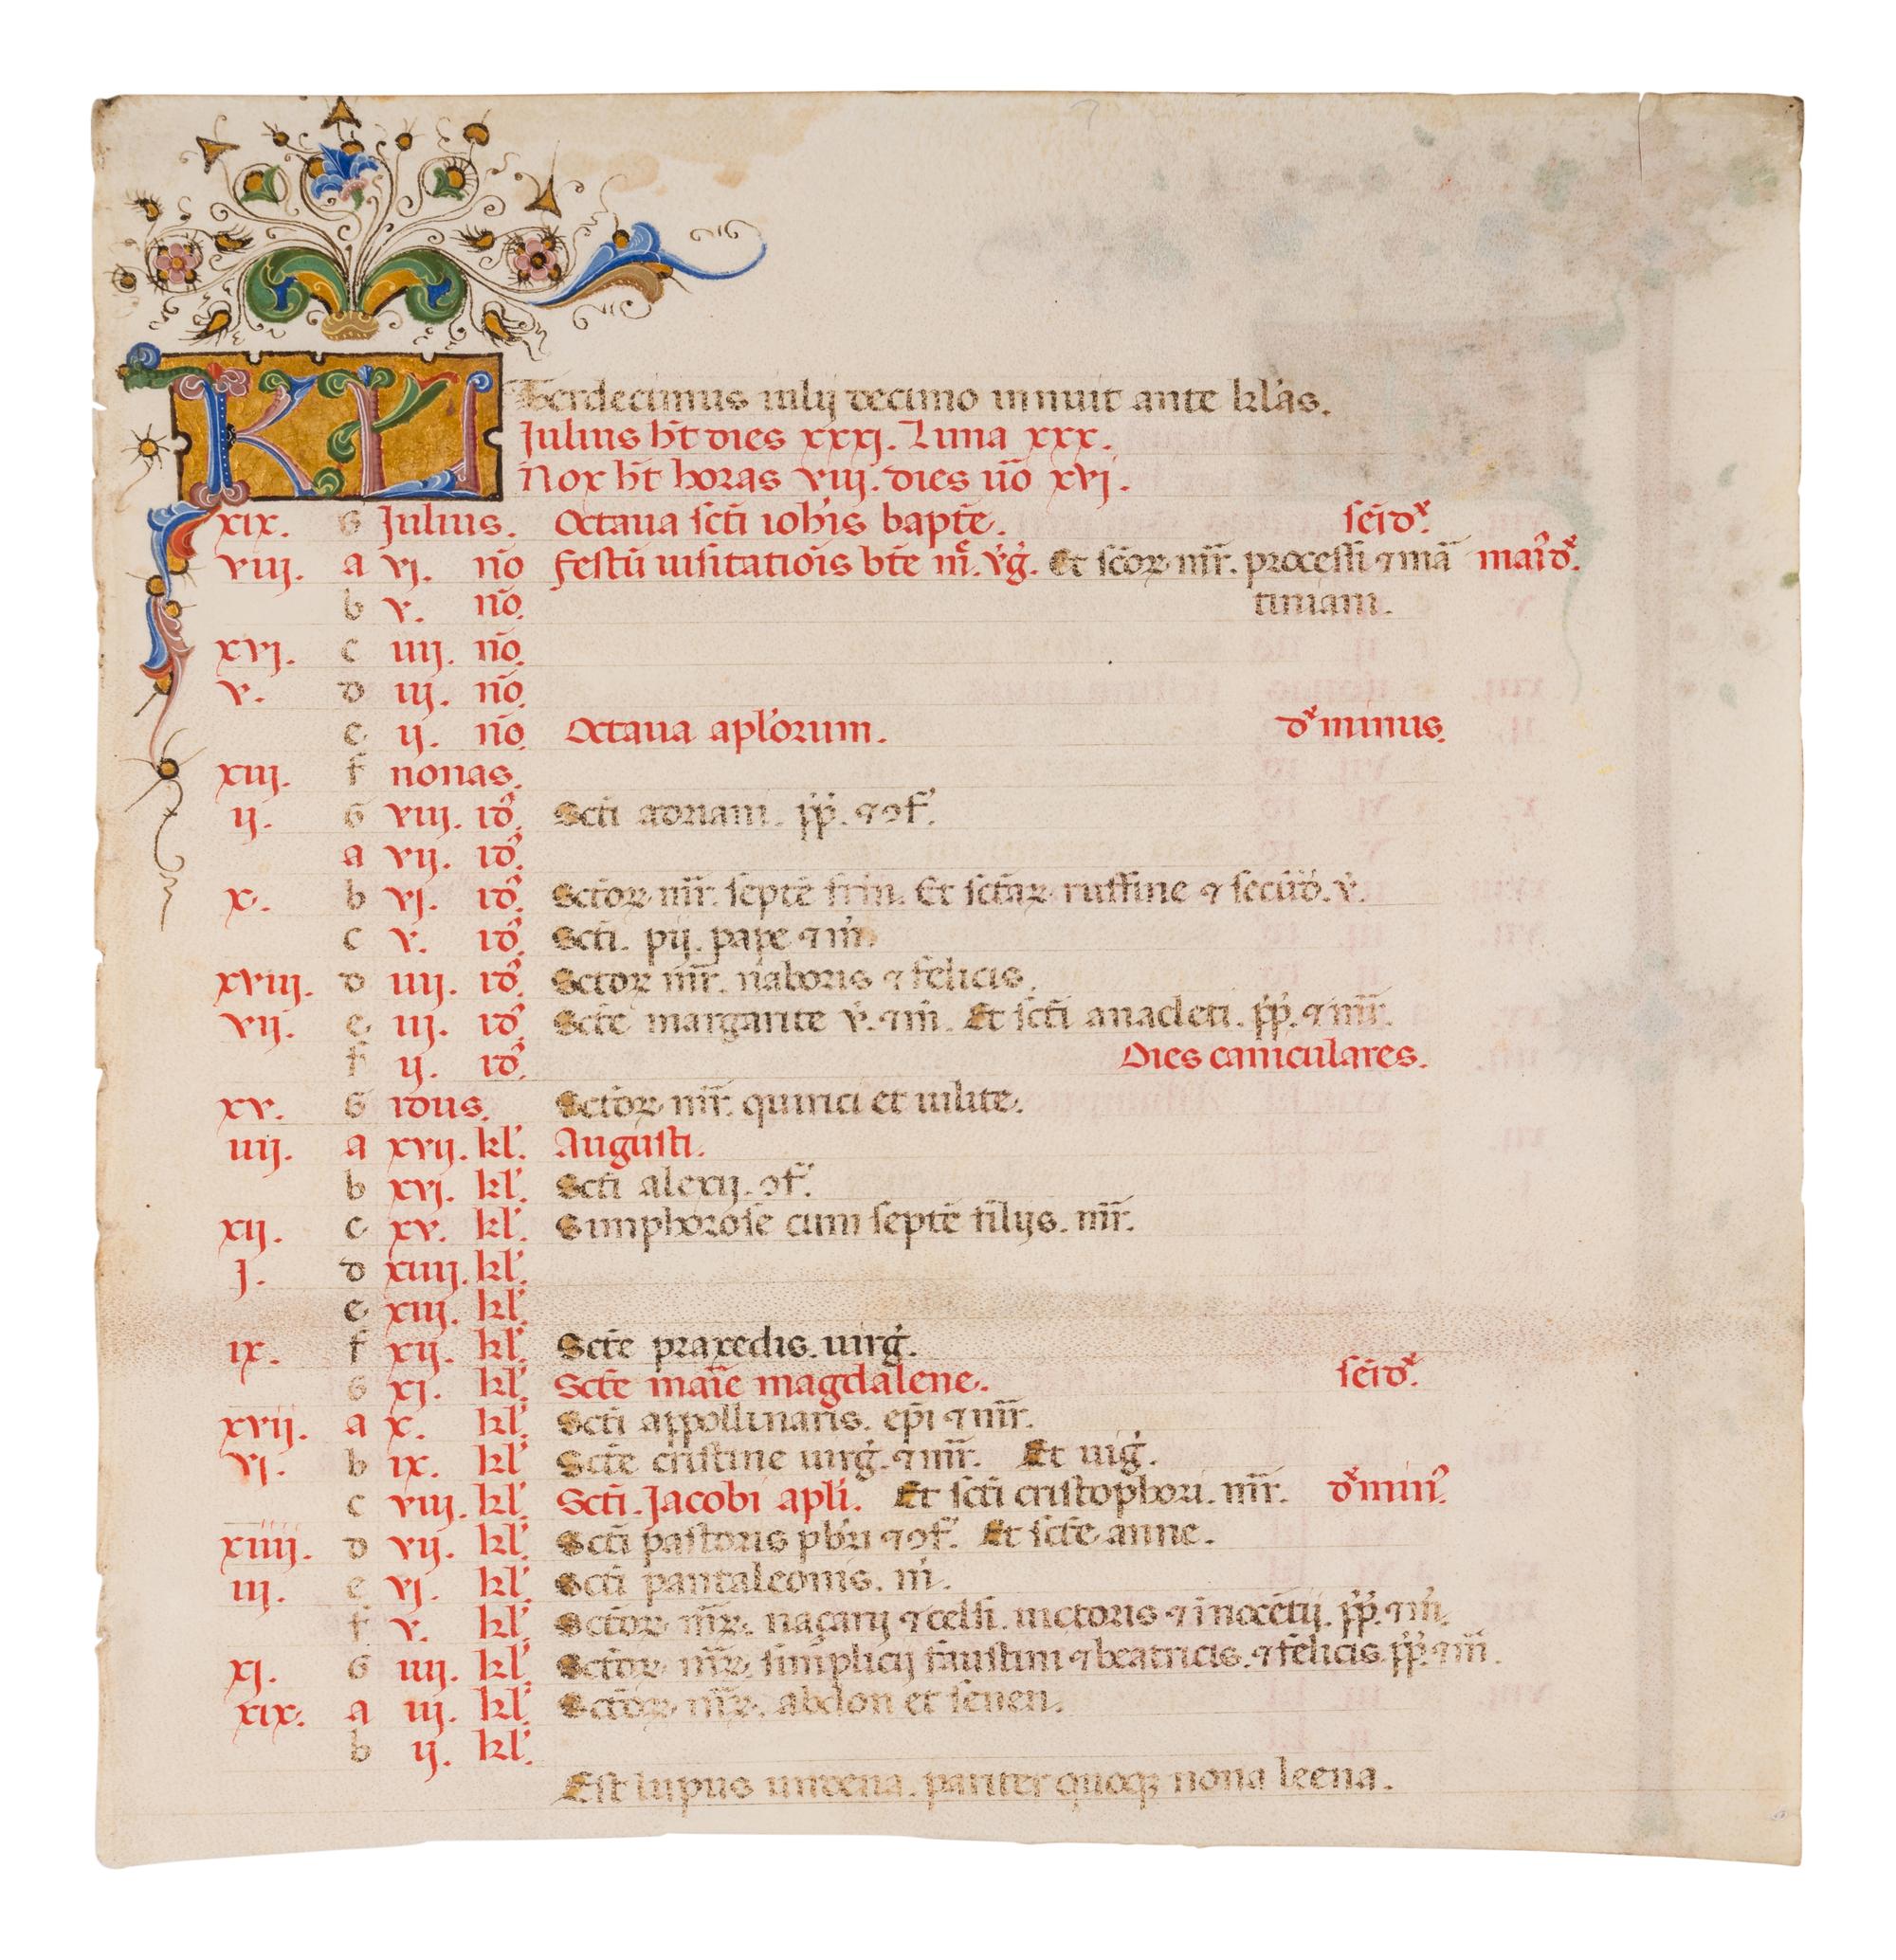 KL Terdecimus iulij decimo innuit ante kl'as.
Julius ht dies xxxj. Luna xxx.
Nox ht horas viij. dies ũo xvj.
xix. G Julius. Octaua scti ioh'is bapte. sēidx̃.
viij. a vj. no Festũ uisitatiois bte m̃. v̓g̓. Et sctoꝝ mr̃r. processi ⁊ ma maid̓x̃.
b v. no tiniani.
xvj. c iiij. no
v. d iij. no
e ij. no Octaua apl'orum. dx̃ minus.
xiij. f nonas.
ij. G viij. id' Scti adriani. pp̃. ⁊ ꝯf'.
a vij. id'
x. b vj. id' Sctoꝝ mr̃r. septe frm. Et sctaꝝ ruffine ⁊ secud'. v̓.
c v. id' Scti. pij. pape ⁊ m̓.
xviij. d iiij. id' Sctoꝝ mr̃r. naboris ⁊ felicis.
vij. e iij. id' Scte margarite v̓. ⁊ m̓. Et scti anacleti. pp̃. ⁊ mr̃r.
f ij. id' Dies caniculares.
xv. G idus. Sctoꝝ mr̃r. quirici et iulite.
iiij. a xvij. kl'. Augusti.
b xvj. kl'. Scti alexij. ꝯf'.
xij. c xv. kl'. Simphorose cum septe filijs. mr̃r.
j. d xiiij. kl'.
e xiij. kl'.
ix. f xij. kl'. Scte praxedis. uirg̓.
G xj. kl'. Scte maie magdalene. sēidx̃.
xvij. a x. kl'. Scti appollinaris. epi ⁊ mr̃r.
vj. b ix. kl' Scte cristine uirg̓. ⁊ mr̃r. Et uig̓.
c viij. kl'. Scti. Jacobi apli. Et scti cristophori. mr̃r. dx̃ min'.
xiiij. d vij. kl'. Scti pastoris pb'ri ⁊ ꝯf'. Et scte anne.
iij. e vj. kl' Scti pantaleonis. m̓.
f v. kl' Sctoꝝ mr̃ꝝ. naçarij ⁊ celsi. uictoris ⁊ inocetij. pp̃. ⁊ m̓.
xj. G iiij. kl' Sctoꝝ mr̃ꝝ. simplicij faustini ⁊ beatricis. ⁊ felicis. pp̃. ⁊ m̃.
xix. a iij. kl' Sctoꝝ mr̃ꝝ. abdon et senen.
b ij. kl'.
Est lupus undena. pariter quoqꝫ nona leena.